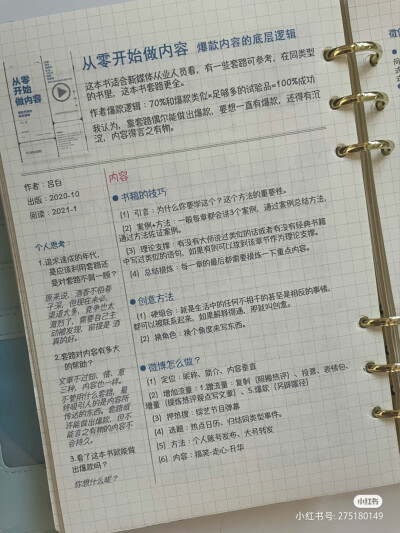 从零开始做内容 爆款内容的底层逻辑
从零
开始
做内容
这本书适合新媒体从业人员看，有一些套路可参考，在同类型
的书里，这本书套路更全。
作者爆款逻辑：70%和爆款类似+足够多的试验品=100%成功
我认为，靠套路偶尔能做出爆款，要想一直有爆款，还得有沉
淀，内容得言之有物。
作者：吕白
出版：2020-10
阅读：2021-1
个人思考：
1.追求速成的年代，
是应该利用套路还
是对套路不屑一顾？
原来说，酒香不怕巷
子深，但现在未必，
渠道太多，竞争也太
激烈了，需要自己主
动被发现，前提是酒
真的好。
2.套路对内容有多大
的帮助？
文章不过形、情、意
三种，内容也一样。
不要用什么套路，最
终吸引人的是内容所
传达的东西。套路或
许能做出爆款，但不
能言之有物的内容不
会持久。
3.看了这本书就能做
出爆款吗？
你想什么呢？
内容
书稿的技巧
(1) 引言：为什么你要学这个？这个方法的重要性。
(2) 案例+方法：一般每章都会讲3个案例，通过案例总结方法，
通过方法佐证案例。
(3) 理论支撑：有没有大师说过类似的话或者有没有经典书籍
中写过类似的语句，如果有则可以放到该章节作为理论支撑。
(4) 总结提炼：每一章的最后都需要提炼一下重点内容。
创意方法
(1) 硬组合：就是生活中的任何不相干的甚至是相反的事情，
都可以被联系起来，如果解释得通，那就叫创意。
(2) 换角色：换个角度来写东西。
微博怎么做？
(1) 定位：昵称、简介、内容垂直
(2) 增加流量：1.蹭流量：复制（照搬热评）、投票、表情包、
增量（提炼热评观点写文章）、5.爆款（另辟蹊径）
(3) 押热搜：综艺节目弹幕
(4) 选题：热点日历、归结同类型事件。
(5) 方法：个人账号发布、大号转发
(6) 内容：搞笑-走心-升华
小红书
小红书号: 275180149